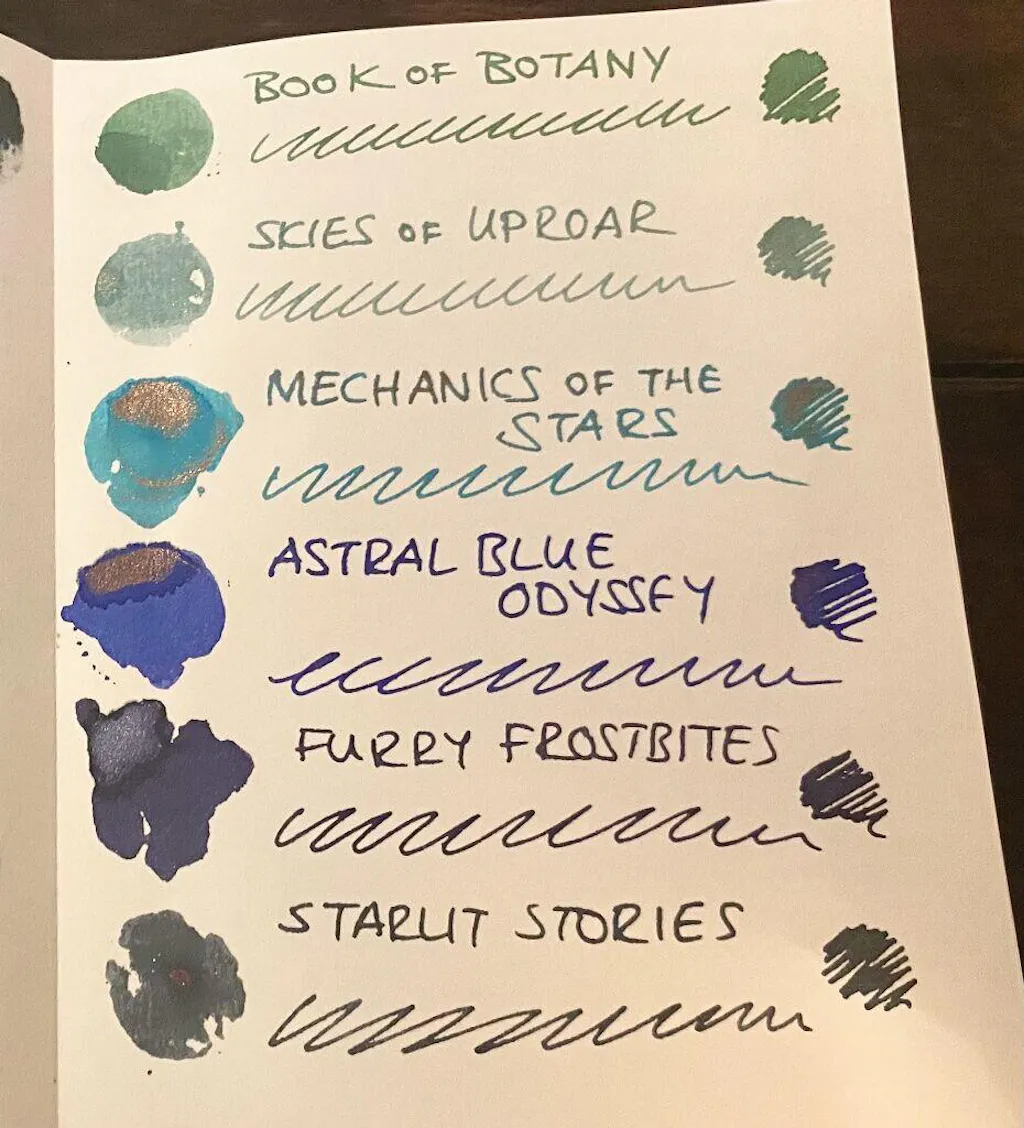 BOOK OF BOTANY
SKIES OF UPROAR
MECHANICS OF THE
STARS
ASTRAL BLUE
ODYSSEY
FURRY FROSTBITES
STARLIT STORIES